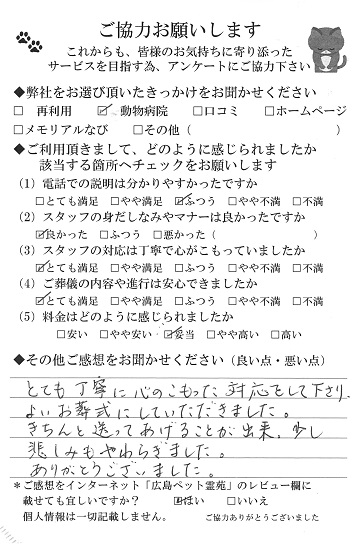 ご協力お願いします
これからも、皆様のお気持ちに寄り添った
サービスを目指す為、アンケートにご協力下さい
◆弊社をお選び頂いたきっかけをお聞かせください
□ 再利用 ☑ 動物病院 □口コミ □ホームページ
□メモリアルなび □その他（ ）
◆ご利用頂きまして、どのように感じられましたか
該当する箇所へチェックをお願いします
（1）電話での説明は分かりやすかったですか
□とても満足 □やや満足 ☑ふつう □やや不満 □不満
（2）スタッフの身だしなみやマナーは良かったですか
☑良かった □ふつう □悪かった（ ）
（3）スタッフの対応は丁寧で心がこもっていましたか
☑とても満足 □やや満足 □ふつう □やや不満 □不満
（4）ご葬儀の内容や進行は安心できましたか
☑とても満足 □やや満足 □ふつう □やや不満 □不満
（5）料金はどのように感じられましたか
□安い □やや安い ☑妥当 □やや高い □高い
◆その他ご感想をお聞かせください（良い点・悪い点）
とても丁寧に心のこもった対応をして下さり、
よいお葬式にしていただきました。
きちんと送ってあげることが出来、少し
悲しみもやわらぎました。
ありがとうございました。
＊ご感想をインターネット「広島ペット霊苑」のレビュー欄に
載せても宜しいですか？ ☑はい □いいえ
個人情報は一切記載しません。 ご協力ありがとうございました